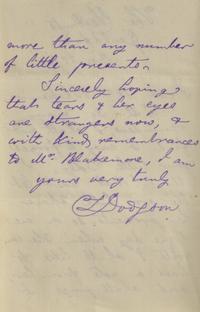 more than any number
of little presents.
Sincerely hoping
that tears & her eyes
are strangers now, &
with kind remembrances
to Mr. Blakemore, I am
yours very truly
CLDodgson